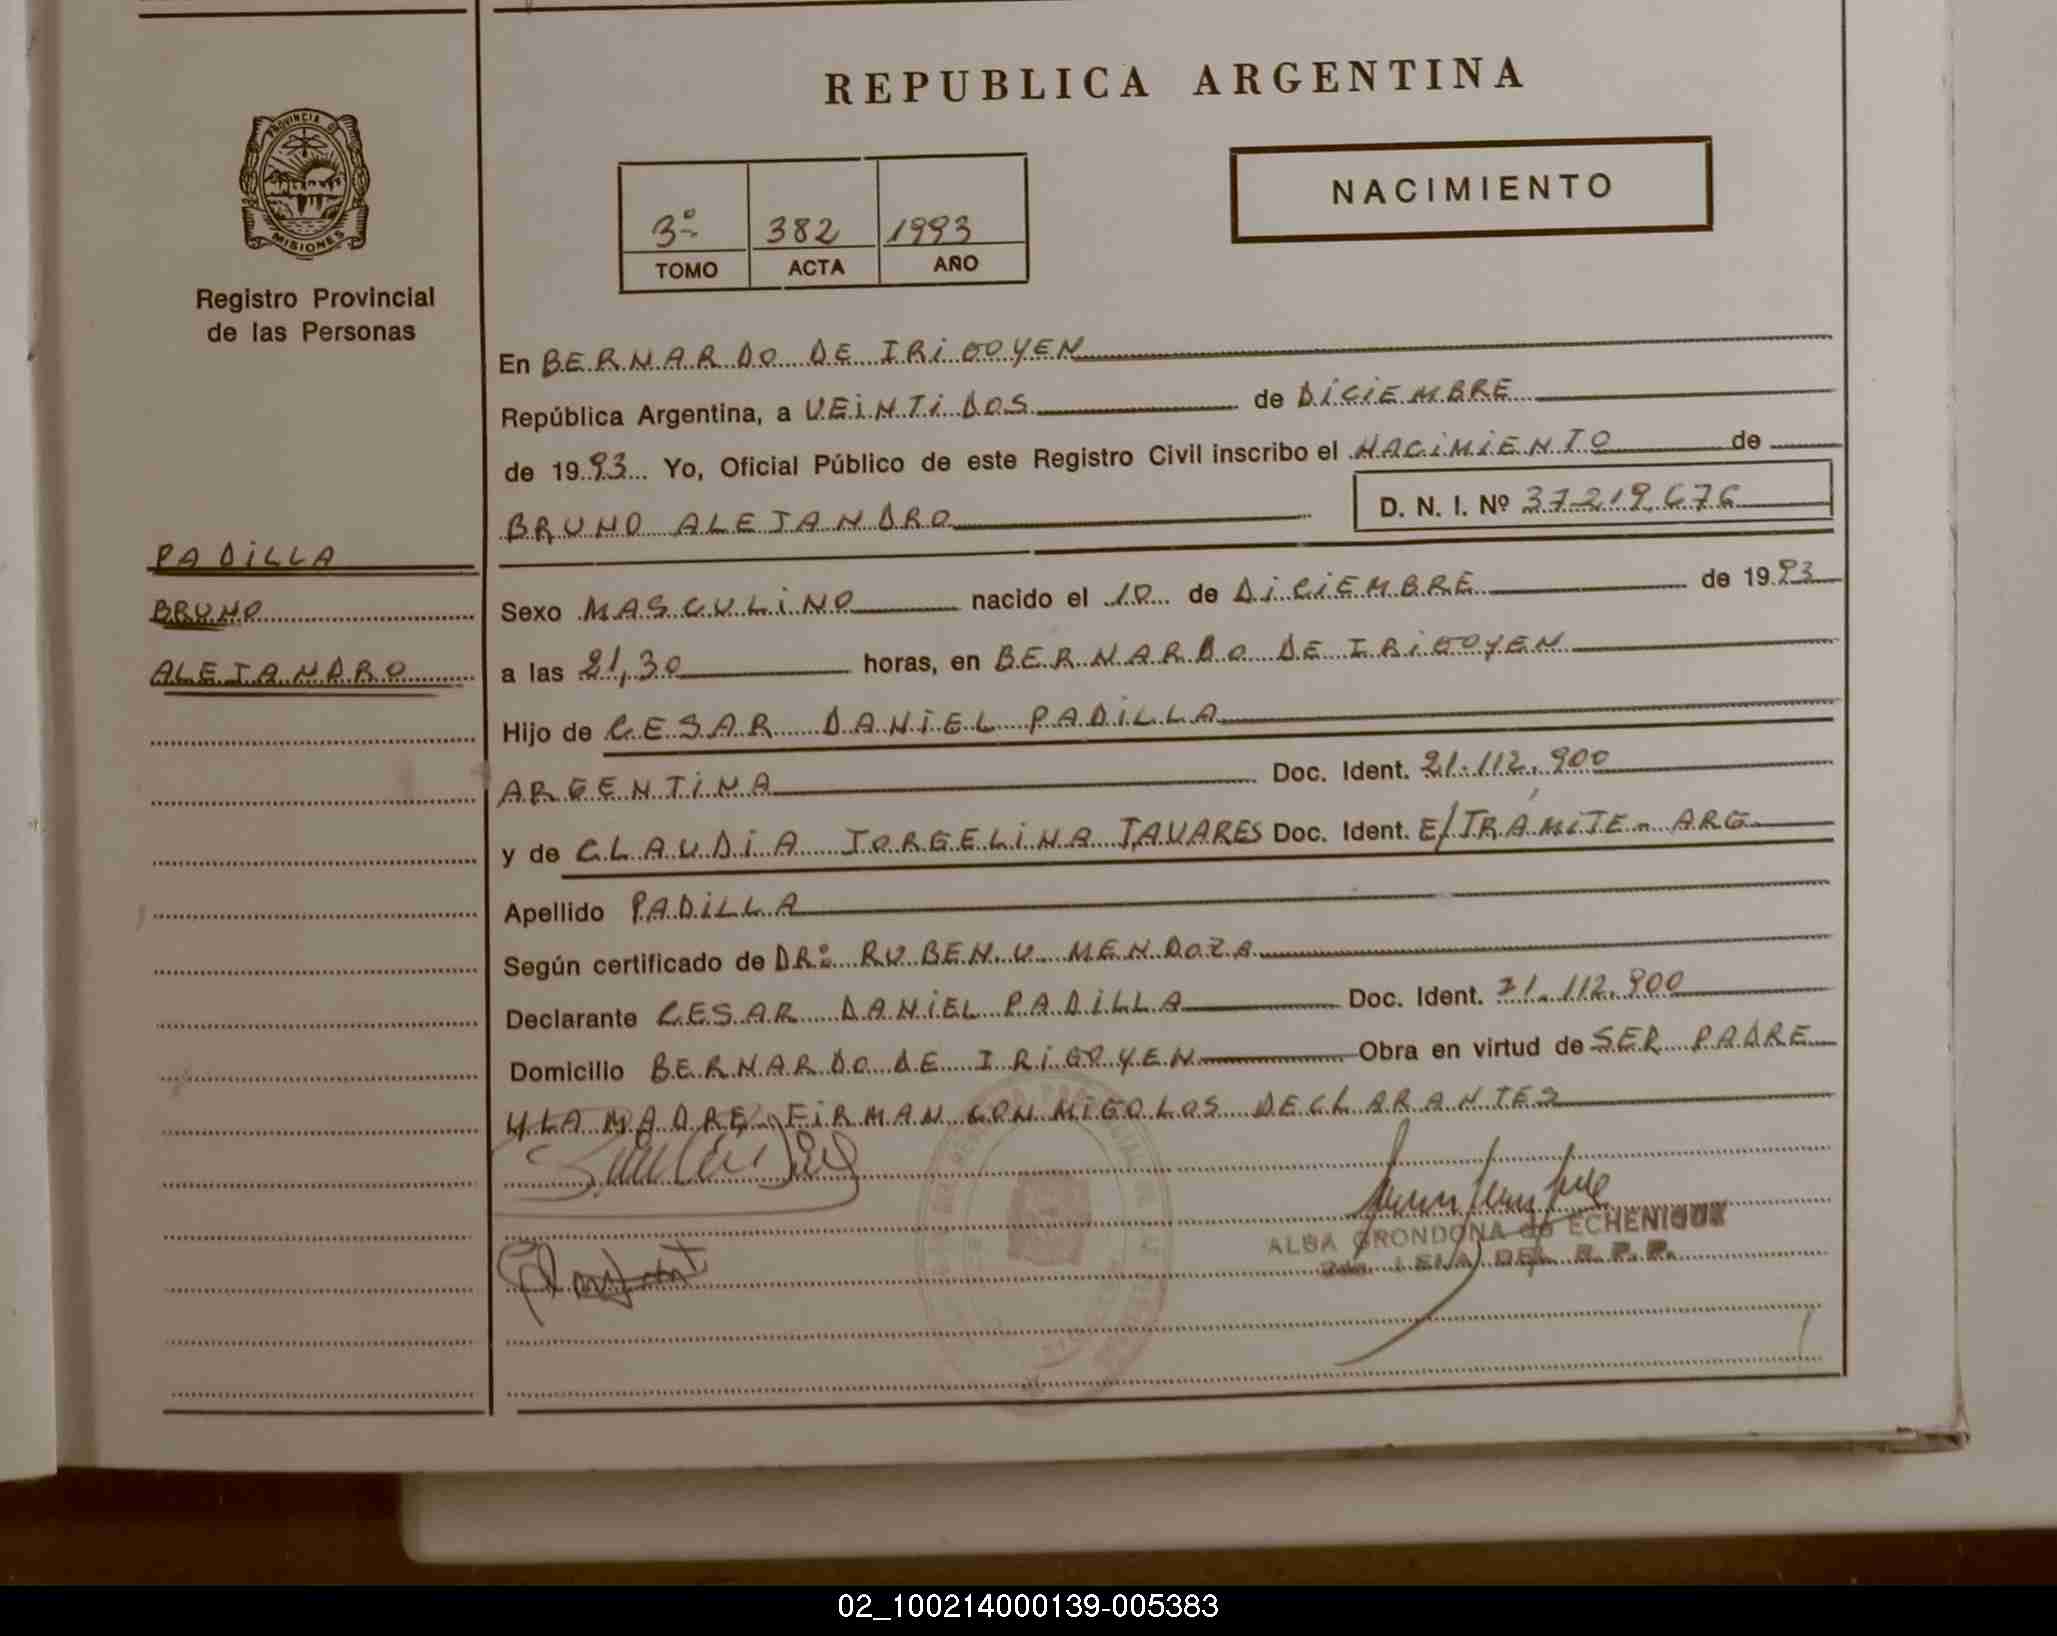 REPUBLICA ARGENTINA
PROVINCIA DE
MISIONES
Registro Provincial
de las Personas
NACIMIENTO
3º 382 1993
TOMO ACTA AÑO
En BERNARDO DE IRIGOYEN
República Argentina, a VEINTIDOS de DICIEMBRE
de 1993 Yo, Oficial Público de este Registro Civil inscribo el NACIMIENTO de
BRUNO ALEJANDRO D. N. I. Nº 37.219.676
PADILLA
BRUNO
ALEJANDRO
Sexo MASCULINO nacido el 10 de DICIEMBRE de 1993
a las 21,30 horas, en BERNARDO DE IRIGOYEN
Hijo de CESAR DANIEL PADILLA
ARGENTINA Doc. Ident. 21.112.900
y de CLAUDIA JORGELINA TAVARES Doc. Ident. E/TRAMITE - ARG
Apellido PADILLA
Según certificado de DR: RUBEN U. MENDOZA
Declarante CESAR DANIEL PADILLA Doc. Ident. 21.112.900
Domicilio BERNARDO DE IRIGOYEN Obra en virtud de SER PADRE
Y LA MADRE. FIRMAN CONMIGO LOS DECLARANTES
ALBA GRONDONA de ECHENIQUE
DEL R. P. P.
02_100214000139-005383